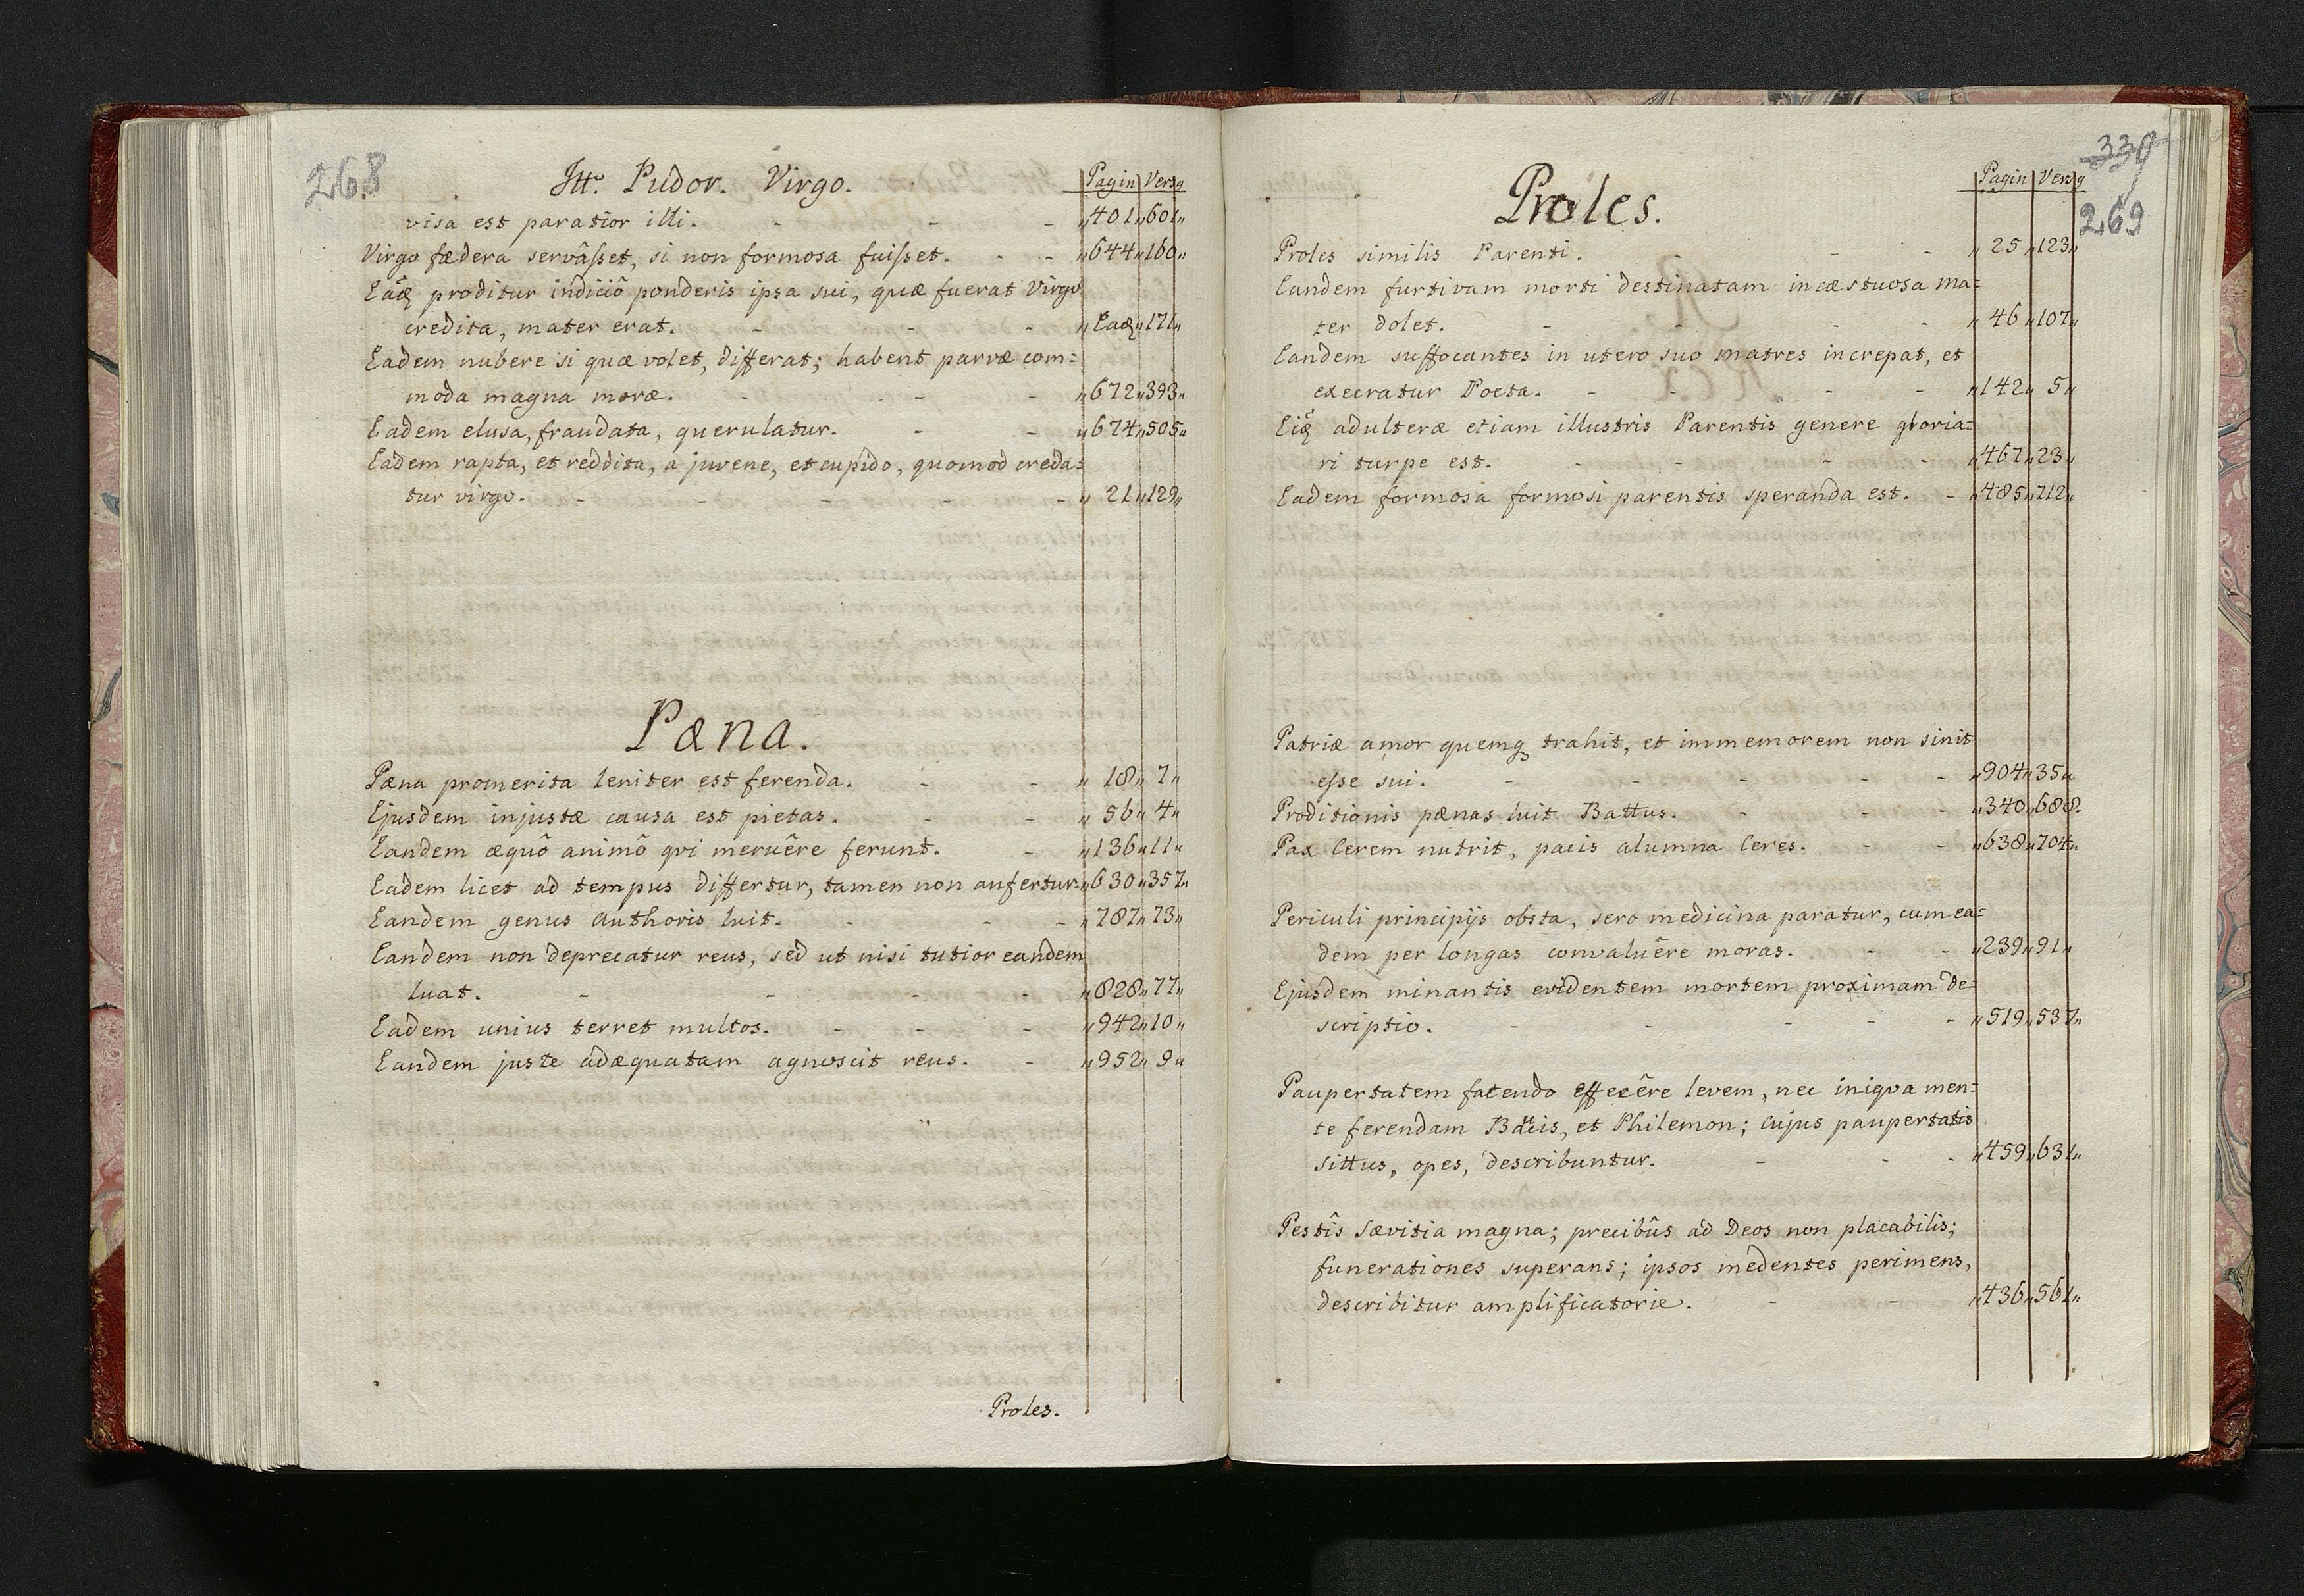 268
Itt. Pudor. Virgo. Pagin Versq
visa est paratior illi. - - - „401„601„
Virgo fœdera servâsset, si non formosa fuisset. - - „644„160„
Eâq proditur indiciô ponderis ipsa sui, quæ fuerat Virgo
credita, mater erat. - - - „Eaq„171„
Eadem nubere si quæ volet, differat; habent parvæ com=
moda magna moræ. - - - „672„393„
Eadem elusa, fraudata, querulatur. - - „674„505„
Eadem rapta, et reddita, a juvene, et cupido, quomod creda=
tur virgo. - - - - - „21„129„
Pœna.
Pœna promerita leniter est ferenda. - - „18„7„
Ejusdem injustæ causa est pietas. - - „56„4„
Eandem æquô animô qvi meruêre ferunt. - „136„11„
Eadem licet ad tempus differtur, tamen non aufertur. „630„357„
Eandem genus authoris luit. - - - „787„73„
Eandem non deprecatur reus, sed ut nisi tutior eandem
luat. - - - - „828„77„
Eadem unius terret multos. - - - „942„10„
Eandem juste adæquatam agnoscit reus. - „952„9„
Proles.
339
269
Proles. Pagin Versq
Proles similis Parenti. - - - „25„123„
Eandem furtivam morti destinatam incæstuosa ma=
ter dolet. - - - - „46„107„
Eandem suffocantes in utero suo matres increpat, et
execratur Poeta. - - - - „142„5„
Eiq adulteræ etiam illustris Parentis genere gloria=
ri turpe est. - - - - „467„23„
Eadem formosa formosi parentis speranda est. - „485„712„
Patriæ amor quemq trahit, et immemorem non sinit
esse sui. - - - - - „904„35„
Proditionis pœnas luit Battus. - - - „340„688.
Pax Cerem nutrit, pacis alumna Ceres. - - „638„704„
Periculi principijs obsta, sero medicina paratur, cum ea=
dem per longas convaluêre moras. - - „239„91„
Ejusdem minantis evidentem mortem proximam de=
scriptio. - - - - - „519„537„
Paupertatem fatendo effecêre levem, nec iniqva men=
te ferendam Baucis, et Philemon; cujus paupertatis
sittus, opes, describuntur. - - - „459„631„
Pestîs sævitia magna; precibûs ad Deos non placabilis;
funerationes superans; ipsos medentes perimens,
describitur amplificatorie. - - „436„561„